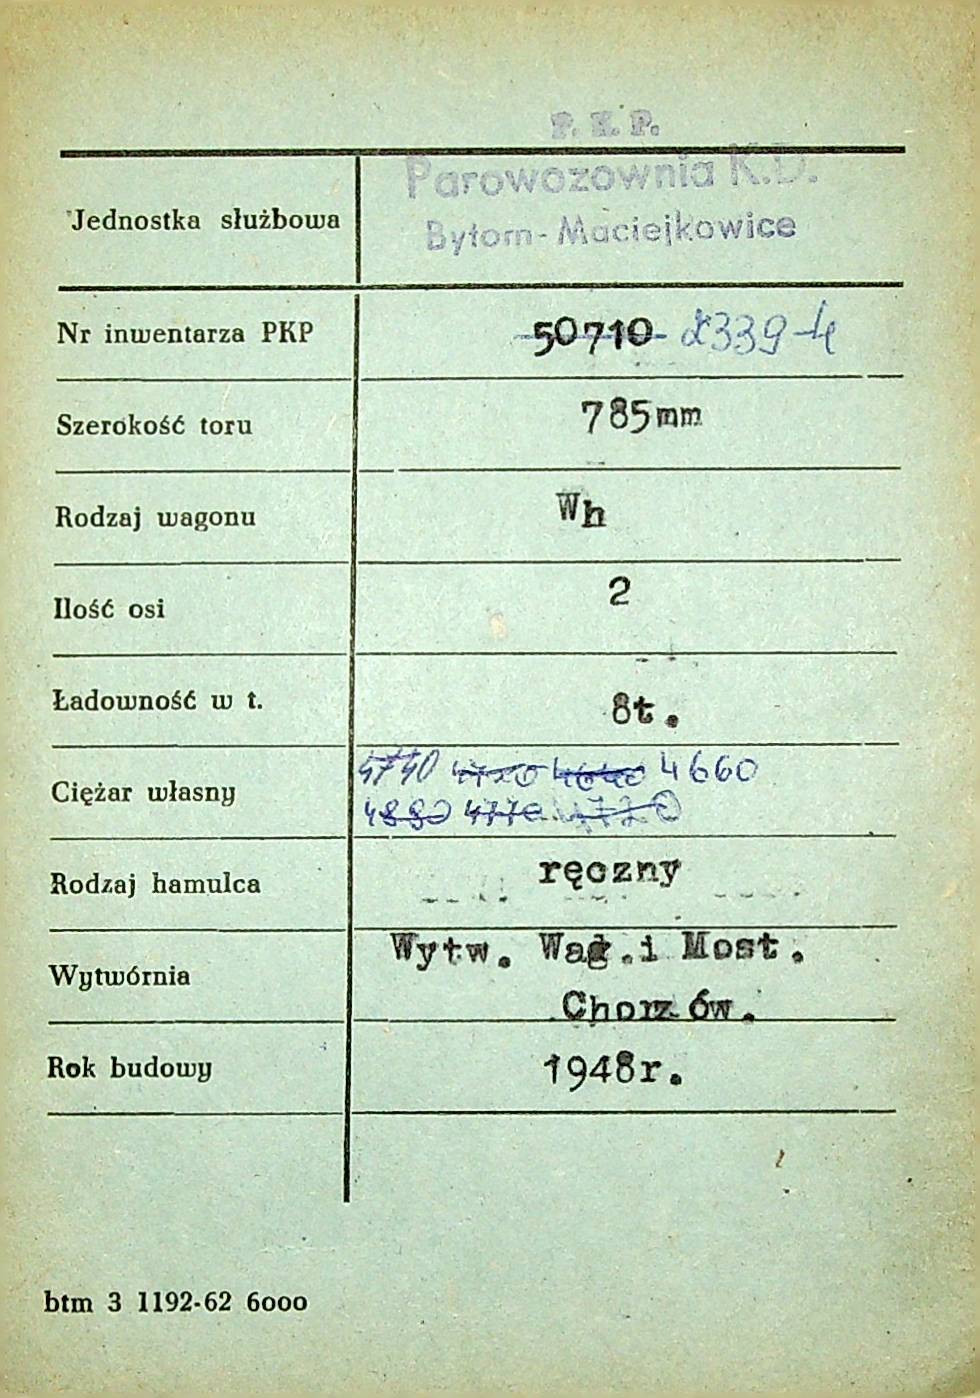 P. K. P.
Parowozownia K.D.
Bytom-Maciejkowice
Jednostka służbowa
Nr inwentarza PKP 50710 2339-4
Szerokość toru 785mm
Rodzaj wagonu Wh
Ilość osi 2
Ładowność w t. 8t.
4740 4720 4640 4660
Ciężar własny
4880 4770 4720
Rodzaj hamulca ręczny
Wytw. Wag.i Most.
Wytwórnia
Chorzów.
Rok budowy 1948r.
btm 3 1192-62 6000